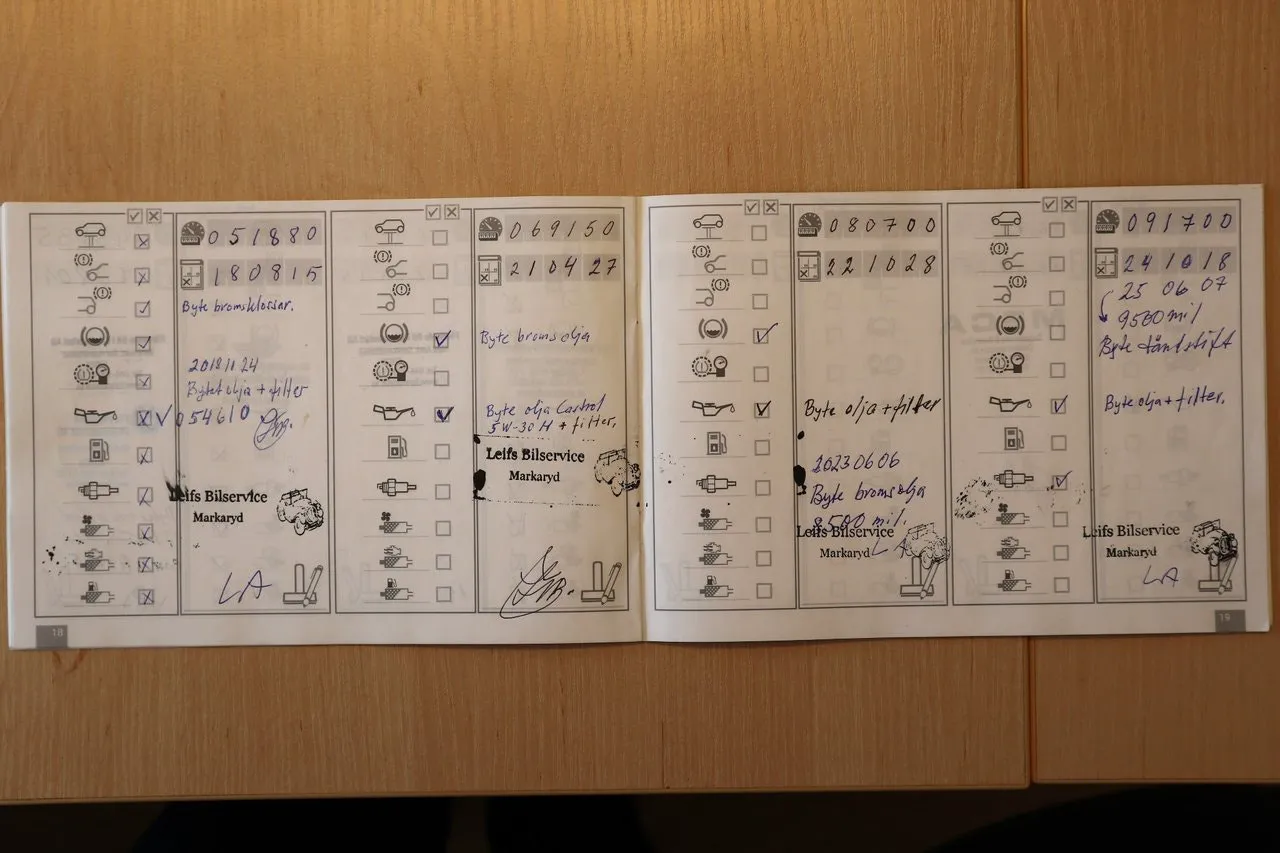 051880
180815
Byte bromsklossar.
20181124
Bytet olja + filter
054610
Leifs Bilservice
Markaryd
LA
18
069150
210427
Byte bromsolja
Byte olja Castrol
5W-30 H + filter.
Leifs Bilservice
Markaryd
080700
221028
Byte olja + filter
20230606
Byte bromsolja
8500 mil.
Leifs Bilservice
Markaryd
LA
091700
241018
25 06 07
9500 mil
Byte tändstift
Byte olja + filter.
Leifs Bilservice
Markaryd
LA
19